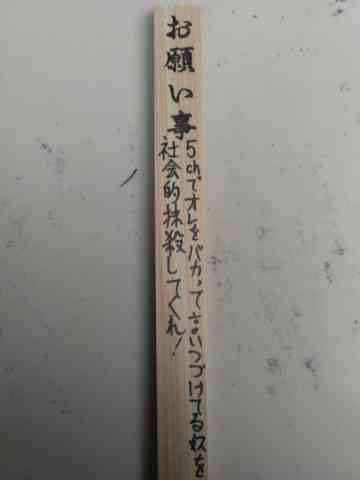 お願い事
5ch.でオレをバカって言いつづけてる奴を
社会的抹殺してくれ!